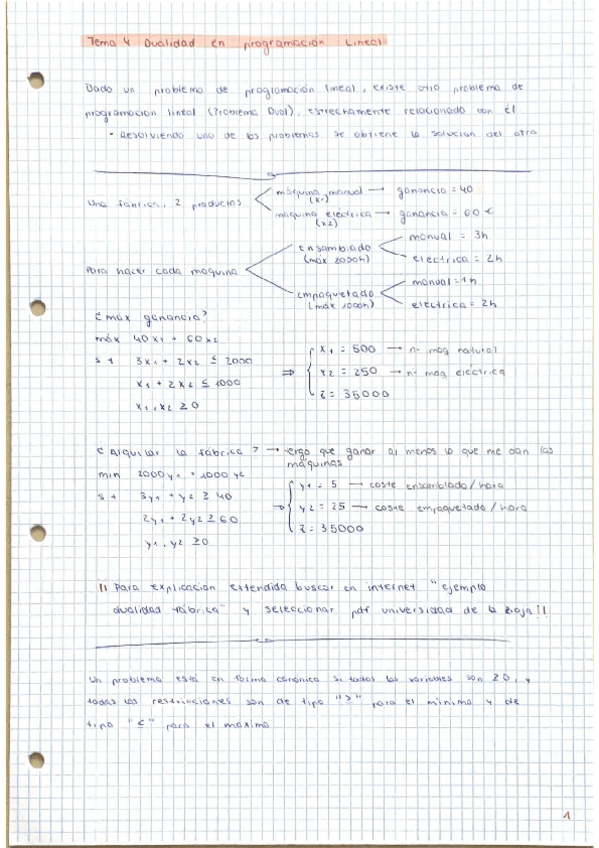 Tema 4 Dualidad en programación Lineal
Dado un problema de programación lineal, existe otro problema de
programación lineal (Problema Dual), estrechamente relacionado con él
• Resolviendo uno de los problemas se obtiene la solución del otro
una fábrica, 2 productos
máquina manual → ganancia = 40
(x₁)
máquina eléctrica → ganancia = 60 €
(x2)
Para hacer cada maquina
ensamblado
(máx 2000h)
manual = 3h
electrica = 2h
empaquetado
(máx 1000h)
manual = 1h
electrica = 2h
¿máx ganancia?
máx 40x₁ + 60x₂
s t 3x₁ + 2x₂ ≤ 2000
x₁ + 2x₂ ≤ 1000
x₁, x₂ ≥ 0
⇒ x₁ = 500 → nº maq natural
x₂ = 250 → nº maq electrica
z = 35000
¿Alquilar la fábrica? → tengo que ganar al menos lo que me dan las
máquinas
min 2000y₁ + 1000y₂
s t 3y₁ + y₂ ≥ 40
2y₁ + 2y₂ ≥ 60
y₁, y₂ ≥ 0
⇒ y₁ = 5 → coste ensamblado / hora
y₂ = 25 → coste empaquetado / hora
z = 35000
!! Para explicación extendida buscar en internet "ejemplo
dualidad fábrica" y seleccionar pdf universidad de la Rioja!!
Un problema está en forma canónica si todas las variables son ≥ 0, y
todas las restricciones son de tipo "≥" para el mínimo y de
tipo "≤" para el máximo
1